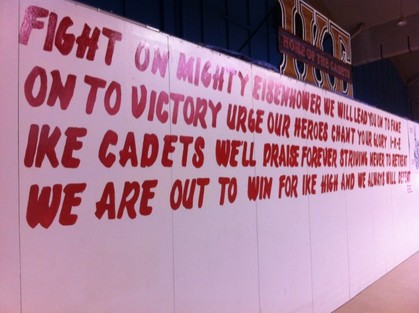 IKE
HOME OF THE CADETS
FIGHT ON MIGHTY EISENHOWER WE WILL LEAD YOU ON TO FAME
ON TO VICTORY URGE OUR HEROES CHANT YOUR GLORY I-K-E
IKE CADETS WE'LL PRAISE FOREVER STRIVING NEVER TO RETREAT
WE ARE OUT TO WIN FOR IKE HIGH AND WE ALWAYS WILL